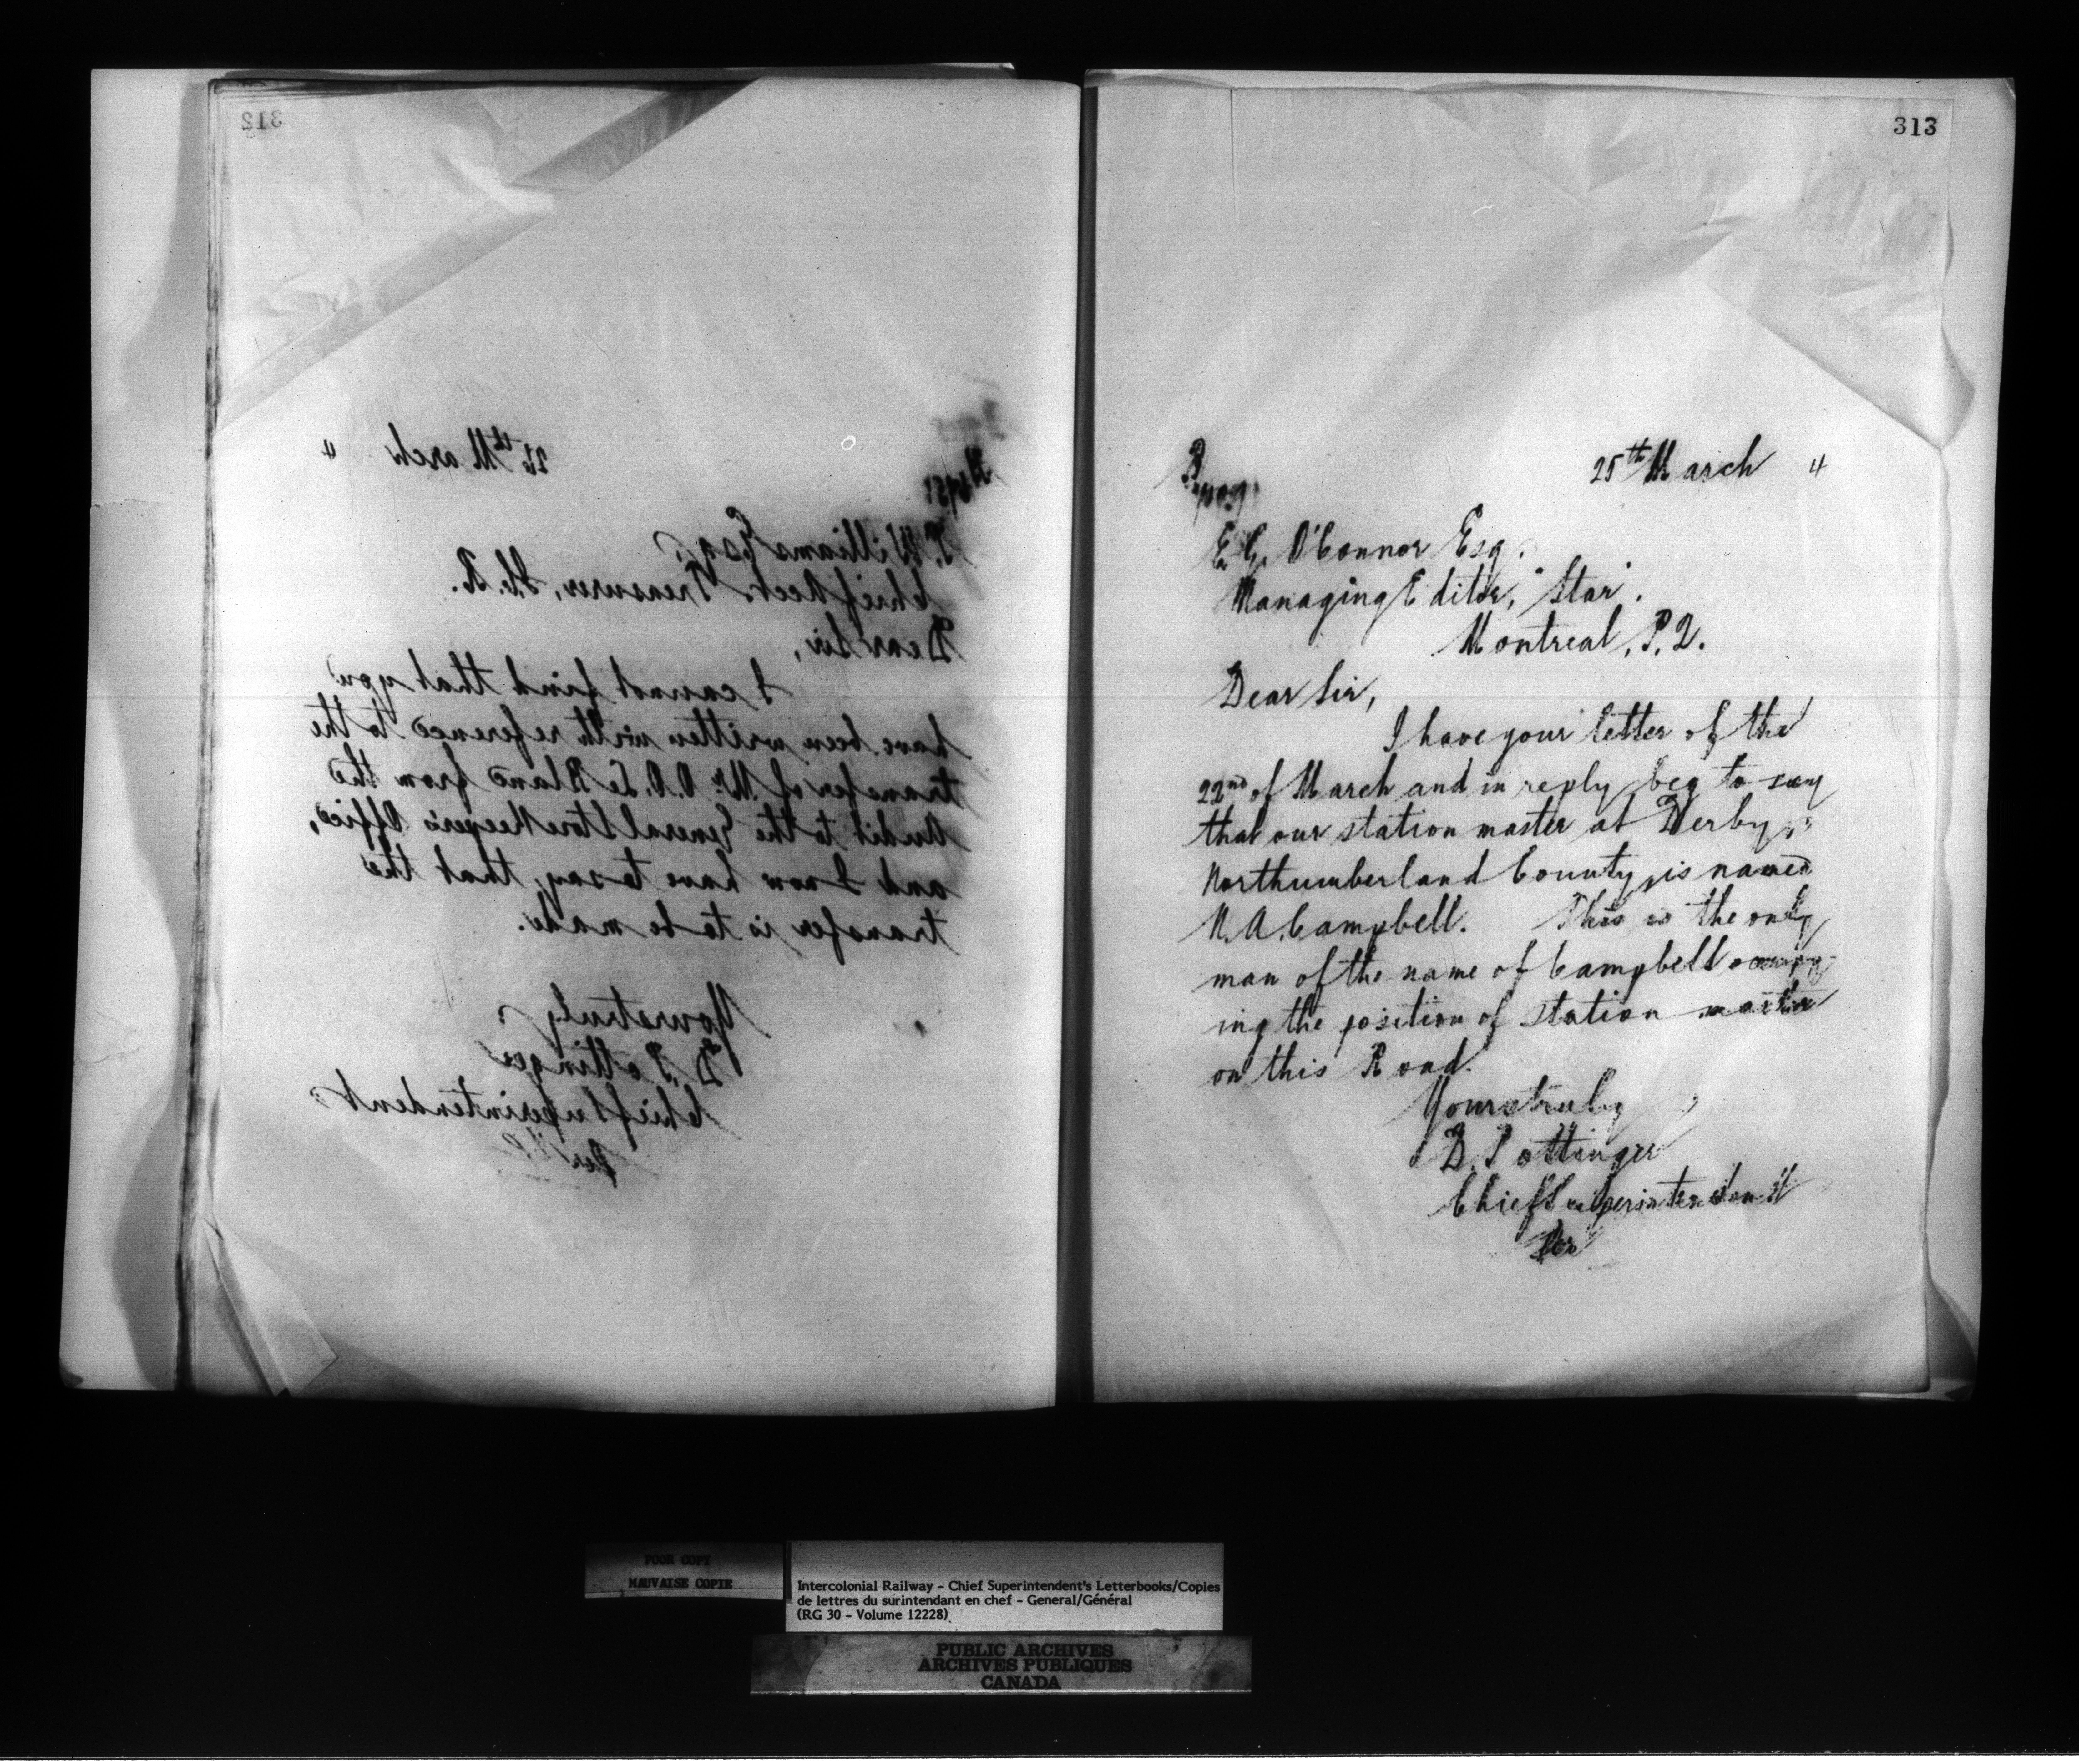 312
26th March 4
T. Williams Esq.
Chief Acct. & Treasurer, I.C.R.
Dear Sir,
I cannot find that you
have been written with reference to the
transfer of Mr. O.O. Le Blanc from the
Audit to the General Store Keeper's Office,
and I now have to say, that the
transfer is to be made.
Yours truly
D. Pottinger
Chief Superintendent
Per
313
25th March 4
E. G. O'Connor Esq.
Managing Editor, "Star".
Montreal, P.Q.
Dear Sir,
I have your letter of the
22nd of March and in reply beg to say
that our station master at Derby,
Northumberland County, is named
N. A. Campbell. This is the only
man of the name of Campbell occupy-
ing the position of station master
on this Road.
Yours truly
D. Pottinger
Chief Superintendent
Per
POOR COPY
MAUVAISE COPIE
Intercolonial Railway - Chief Superintendent's Letterbooks/Copies
de lettres du surintendant en chef - General/Général
(RG 30 - Volume 12228)
PUBLIC ARCHIVES
ARCHIVES PUBLIQUES
CANADA